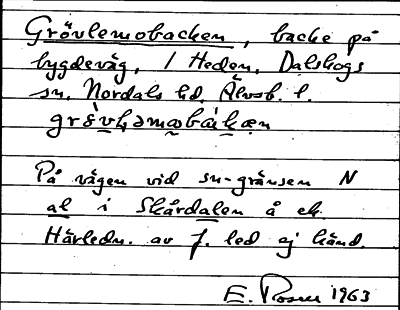 Grövlemobacken, backe på
bygdeväg, / Heden, Dalskogs
sn, Nordals hd, Älvsb. l.
På vägen vid sn-gränsen N
al i Skårdalen å ek.
Härledn. av f. led ej känd.
E. Rosin 1963